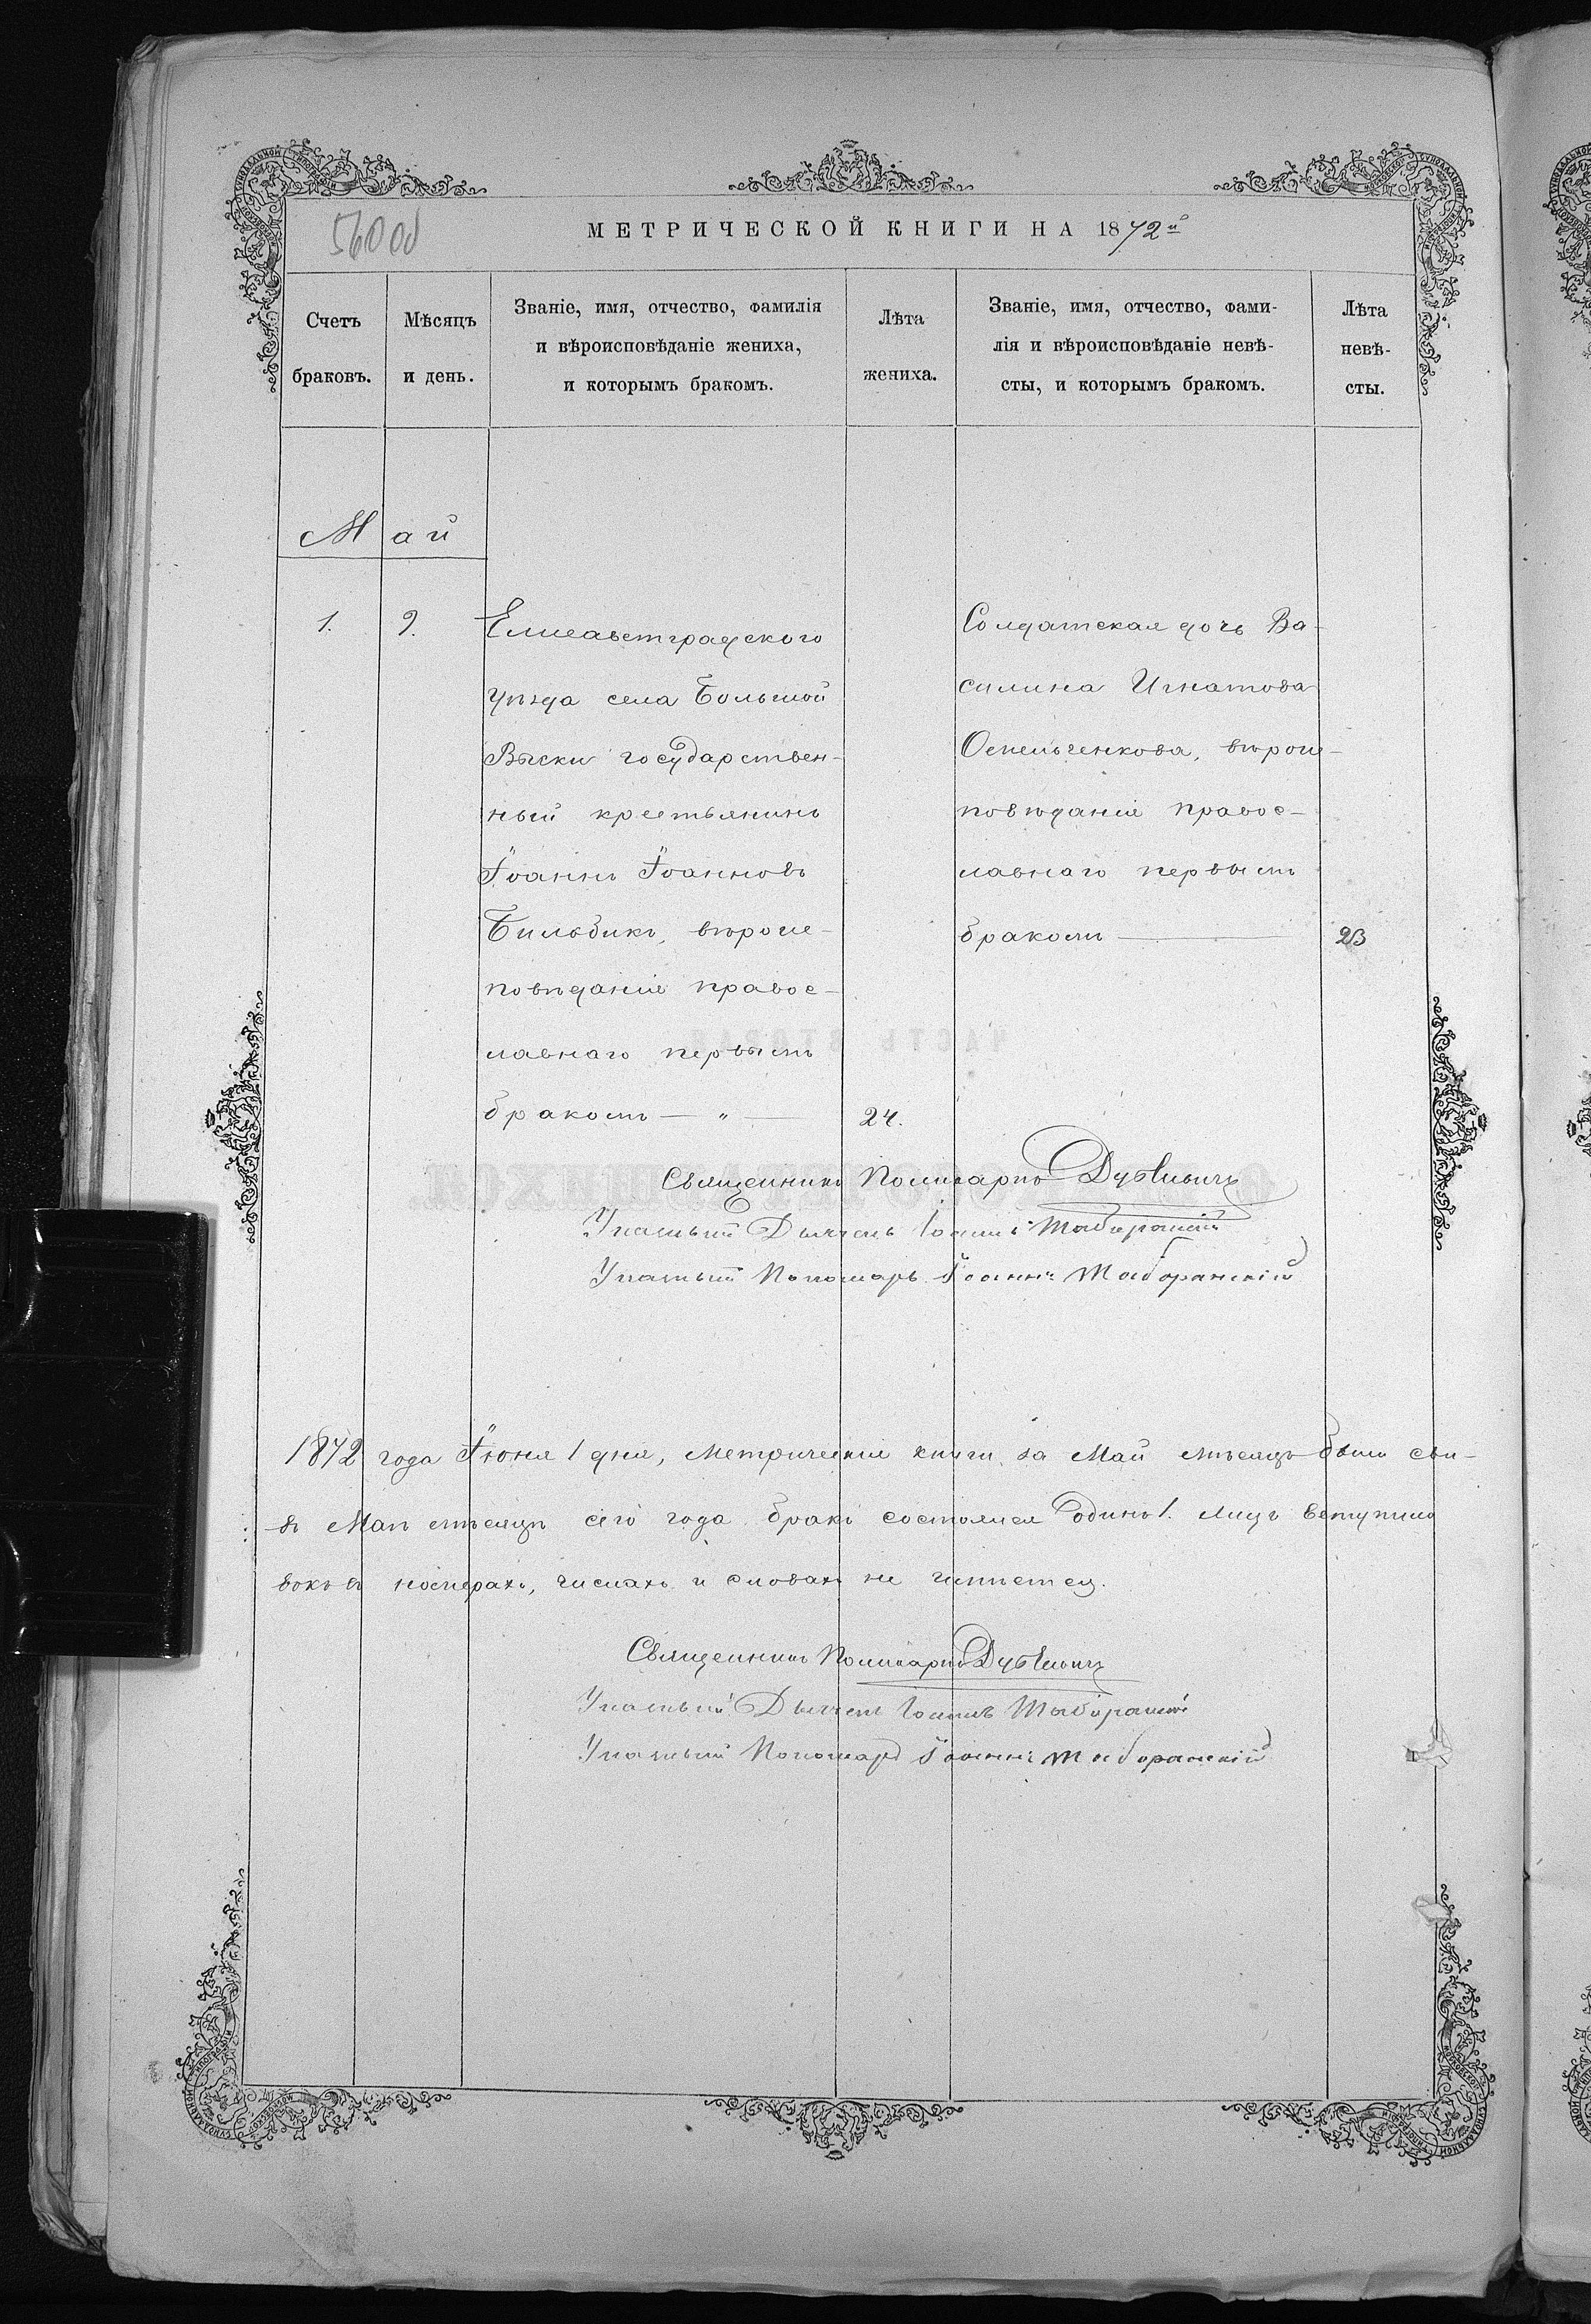 560 об
МЕТРИЧЕСКОЙ КНИГИ НА 1872й
Счетъ браковъ.
Мѣсяцъ и день.
Званіе, имя, отчество, фамилія
и вѣроисповѣданіе жениха,
и которымъ бракомъ.
Лѣта жениха.
Званіе, имя, отчество, фами-
лія и вѣроисповѣданіе невѣ-
сты, и которымъ бракомъ.
Лѣта невѣ-
сты.
Май
1. 9.
Елисаветградского
уѣзда села Большой
Выски государствен-
ный крестьянинъ
Іоаннъ Іоанновъ
Бильдикъ, вѣроис-
повѣданія правос-
лавнаго первымъ
бракомъ — „ — 24.
Солдатская дочь Ва-
силина Игнатова
вѣроис-
повѣданія правос-
лавнаго первымъ
бракомъ — 23
Священникъ Поликарпъ
Указный Дьячекъ Іоаннъ Таборанскій
Указный Пономарь Іоаннъ Таборанскій
1872 года Іюня 1 дня, Метрическія книги за Май мѣсяцъ были сви-
въ Маѣ мѣсяцѣ сего года бракъ состоялся одинъ 1. лицъ вступило
вокъ въ номерахъ, числахъ и словахъ не имѣется.
Священникъ Поликарпъ
Указный Дьячекъ Іоаннъ Таборанскій
Указный Пономарь Іоаннъ Таборанскій